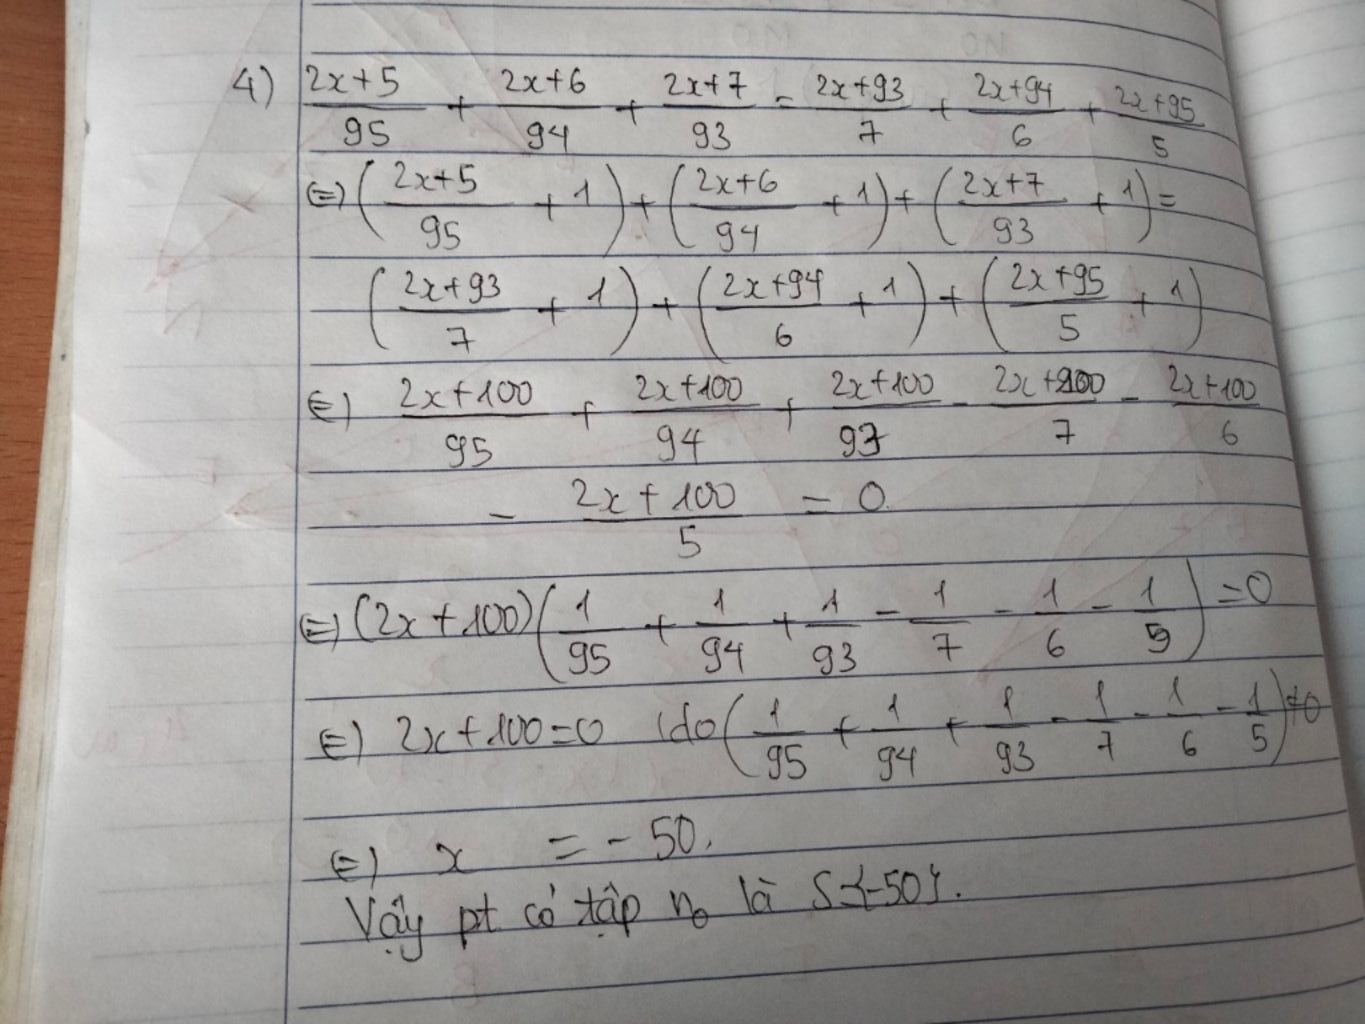 4) (2x+5)/95 + (2x+6)/94 + (2x+7)/93 = (2x+93)/7 + (2x+94)/6 + (2x+95)/5
⇔ ((2x+5)/95 + 1) + ((2x+6)/94 + 1) + ((2x+7)/93 + 1) =
((2x+93)/7 + 1) + ((2x+94)/6 + 1) + ((2x+95)/5 + 1)
⇔ (2x+100)/95 + (2x+100)/94 + (2x+100)/93 - (2x+100)/7 - (2x+100)/6
- (2x+100)/5 = 0
⇔ (2x+100)(1/95 + 1/94 + 1/93 - 1/7 - 1/6 - 1/5) = 0
⇔ 2x+100=0 (do (1/95 + 1/94 + 1/93 - 1/7 - 1/6 - 1/5) ≠0
⇔ x = - 50.
Vậy pt có tập n₀ là S={-50}.